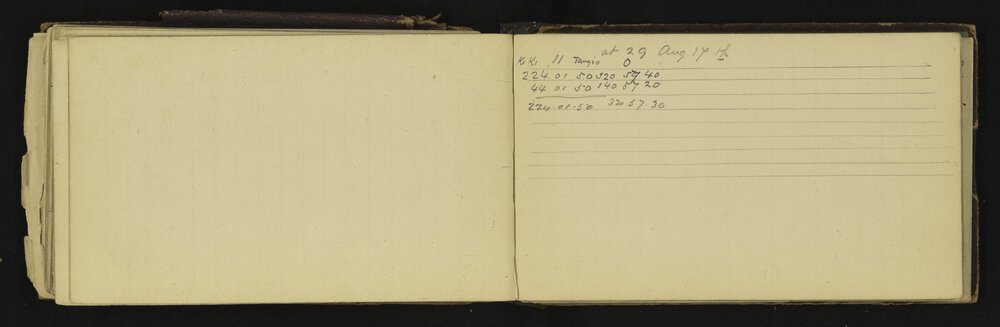 at 29 Aug 14
KiKi 11 Tangio 0
224 01 50 320 57 40
44 01 50 140 57 20
224.01.50 320.57.30